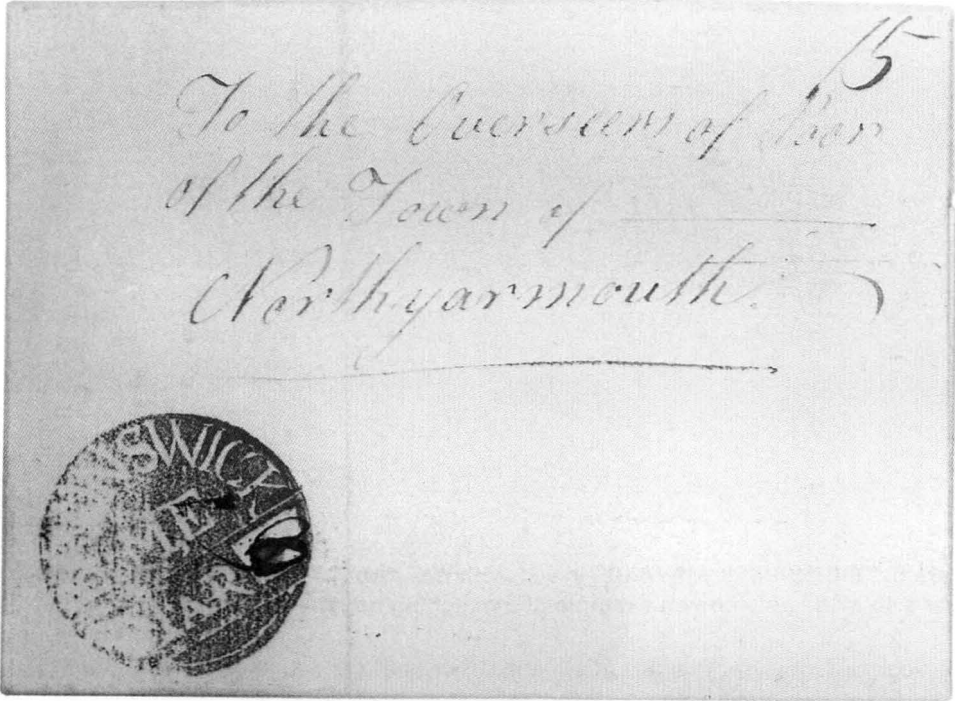 15
To the Overseers of Poor
of the Town of
Northyarmouth.
NSWICK
ME
MAR